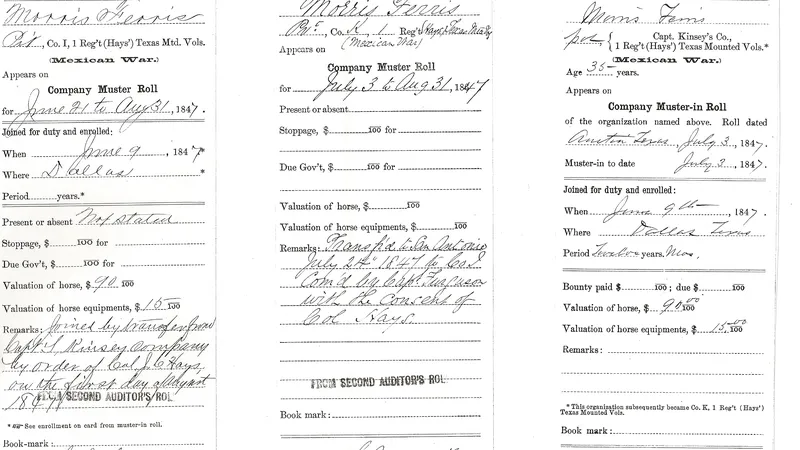 Morris Ferris
Pvt, Co. I, 1 Reg't (Hays') Texas Mtd. Vols.
(Mexican War.)
Appears on
Company Muster Roll
for June 21 to Aug 31, 1847.
Joined for duty and enrolled:
When June 9, 1847*
Where Dallas *
Period years.*
Present or absent Not stated
Stoppage, $ 100 for
Due Gov't, $ 100 for
Valuation of horse, $ 90 100
Valuation of horse equipments, $ 15 100
Remarks: Joined by transfer from
Capt S. Kinsey Company
by order of Col. J. C. Hays,
on the first day of August
1847
SECOND AUDITOR'S ROL
* See enrollment on card from muster-in roll.
Book-mark:
Morris Ferris
Pvt., Co. K, 1 Reg't Hays' Texas
(Mexican War)
Appears on
Company Muster Roll
for July 3 to Aug 31, 1847
Present or absent
Stoppage, $ 100 for
Due Gov't, $ 100 for
Valuation of horse, $ 100
Valuation of horse equipments, $ 100
Remarks: Transf'd to San Antonio
July 24" 1847 to Co I
Com'd by Capt. Ferguson
with the consent of
Col. Hays.
FROM SECOND AUDITOR'S ROL
Book mark:
Morris Ferris
Capt. Kinsey's Co.,
1 Reg't (Hays') Texas Mounted Vols.*
(Mexican War.)
Age 35 years.
Appears on
Company Muster-in Roll
of the organization named above. Roll dated
Austin Texas, July 3, 1847.
Muster-in to date July 3, 1847.
Joined for duty and enrolled:
When June 9th, 1847.
Where Dallas Texas
Period Twelve years. Mos.
Bounty paid $ 100; due $ 100
Valuation of horse, $ 90.00 100
Valuation of horse equipments, $ 15.00 100
Remarks:
* This organization subsequently became Co. K, 1 Reg't (Hays')
Texas Mounted Vols.
Book mark: